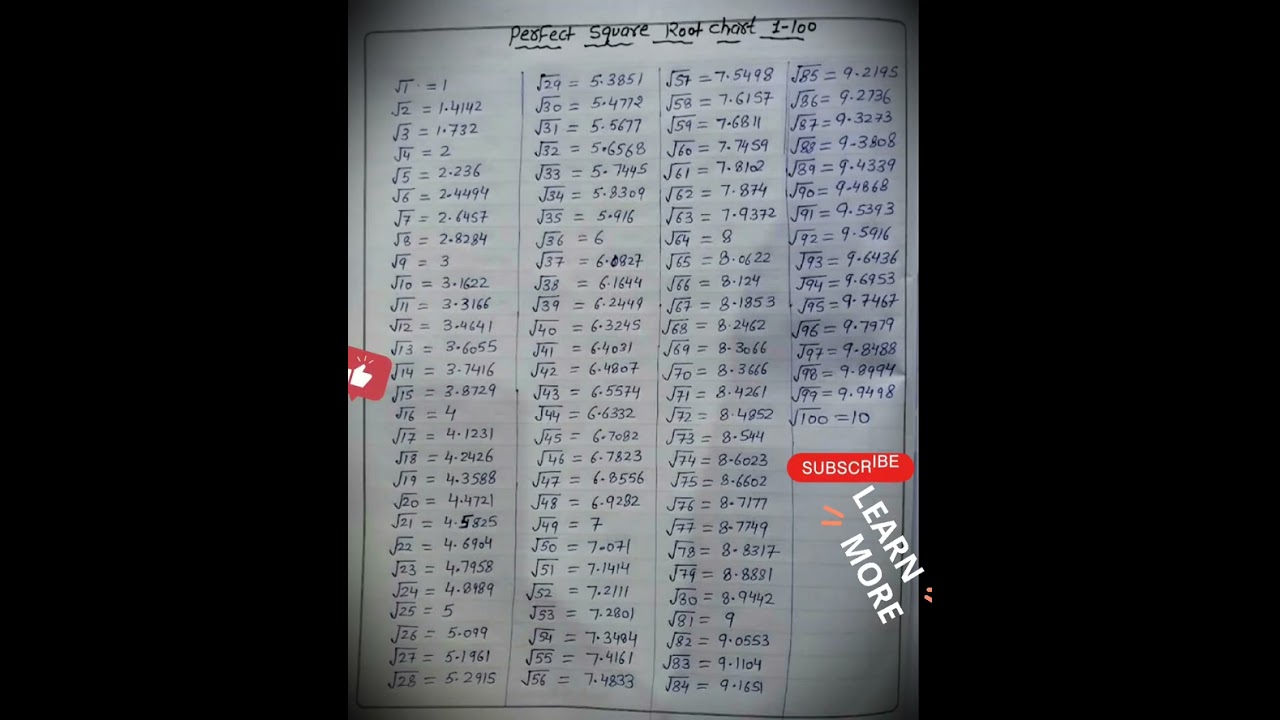 Perfect Square Root chart 1-100
√1 = 1
√2 = 1.4142
√3 = 1.732
√4 = 2
√5 = 2.236
√6 = 2.4494
√7 = 2.6457
√8 = 2.8284
√9 = 3
√10 = 3.1622
√11 = 3.3166
√12 = 3.4641
√13 = 3.6055
√14 = 3.7416
√15 = 3.8729
√16 = 4
√17 = 4.1231
√18 = 4.2426
√19 = 4.3588
√20 = 4.4721
√21 = 4.5825
√22 = 4.6904
√23 = 4.7958
√24 = 4.8989
√25 = 5
√26 = 5.099
√27 = 5.1961
√28 = 5.2915
√29 = 5.3851
√30 = 5.4772
√31 = 5.5677
√32 = 5.6568
√33 = 5.7445
√34 = 5.8309
√35 = 5.916
√36 = 6
√37 = 6.0827
√38 = 6.1644
√39 = 6.2449
√40 = 6.3245
√41 = 6.4031
√42 = 6.4807
√43 = 6.5574
√44 = 6.6332
√45 = 6.7082
√46 = 6.7823
√47 = 6.8556
√48 = 6.9282
√49 = 7
√50 = 7.071
√51 = 7.1414
√52 = 7.2111
√53 = 7.2801
√54 = 7.3484
√55 = 7.4161
√56 = 7.4833
√57 = 7.5498
√58 = 7.6157
√59 = 7.6811
√60 = 7.7459
√61 = 7.8102
√62 = 7.874
√63 = 7.9372
√64 = 8
√65 = 8.0622
√66 = 8.124
√67 = 8.1853
√68 = 8.2462
√69 = 8.3066
√70 = 8.3666
√71 = 8.4261
√72 = 8.4852
√73 = 8.544
√74 = 8.6023
√75 = 8.6602
√76 = 8.7177
√77 = 8.7749
√78 = 8.8317
√79 = 8.8881
√80 = 8.9442
√81 = 9
√82 = 9.0553
√83 = 9.1104
√84 = 9.1651
√85 = 9.2195
√86 = 9.2736
√87 = 9.3273
√88 = 9.3808
√89 = 9.4339
√90 = 9.4868
√91 = 9.5393
√92 = 9.5916
√93 = 9.6436
√94 = 9.6953
√95 = 9.7467
√96 = 9.7979
√97 = 9.8488
√98 = 9.8994
√99 = 9.9498
√100 = 10
SUBSCRIBE
LEARN
MORE